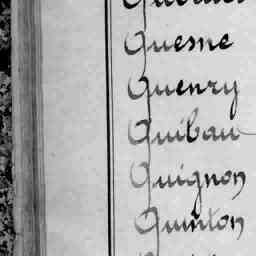 Quesne
Quenry
Quibau
Quignon
Quinton